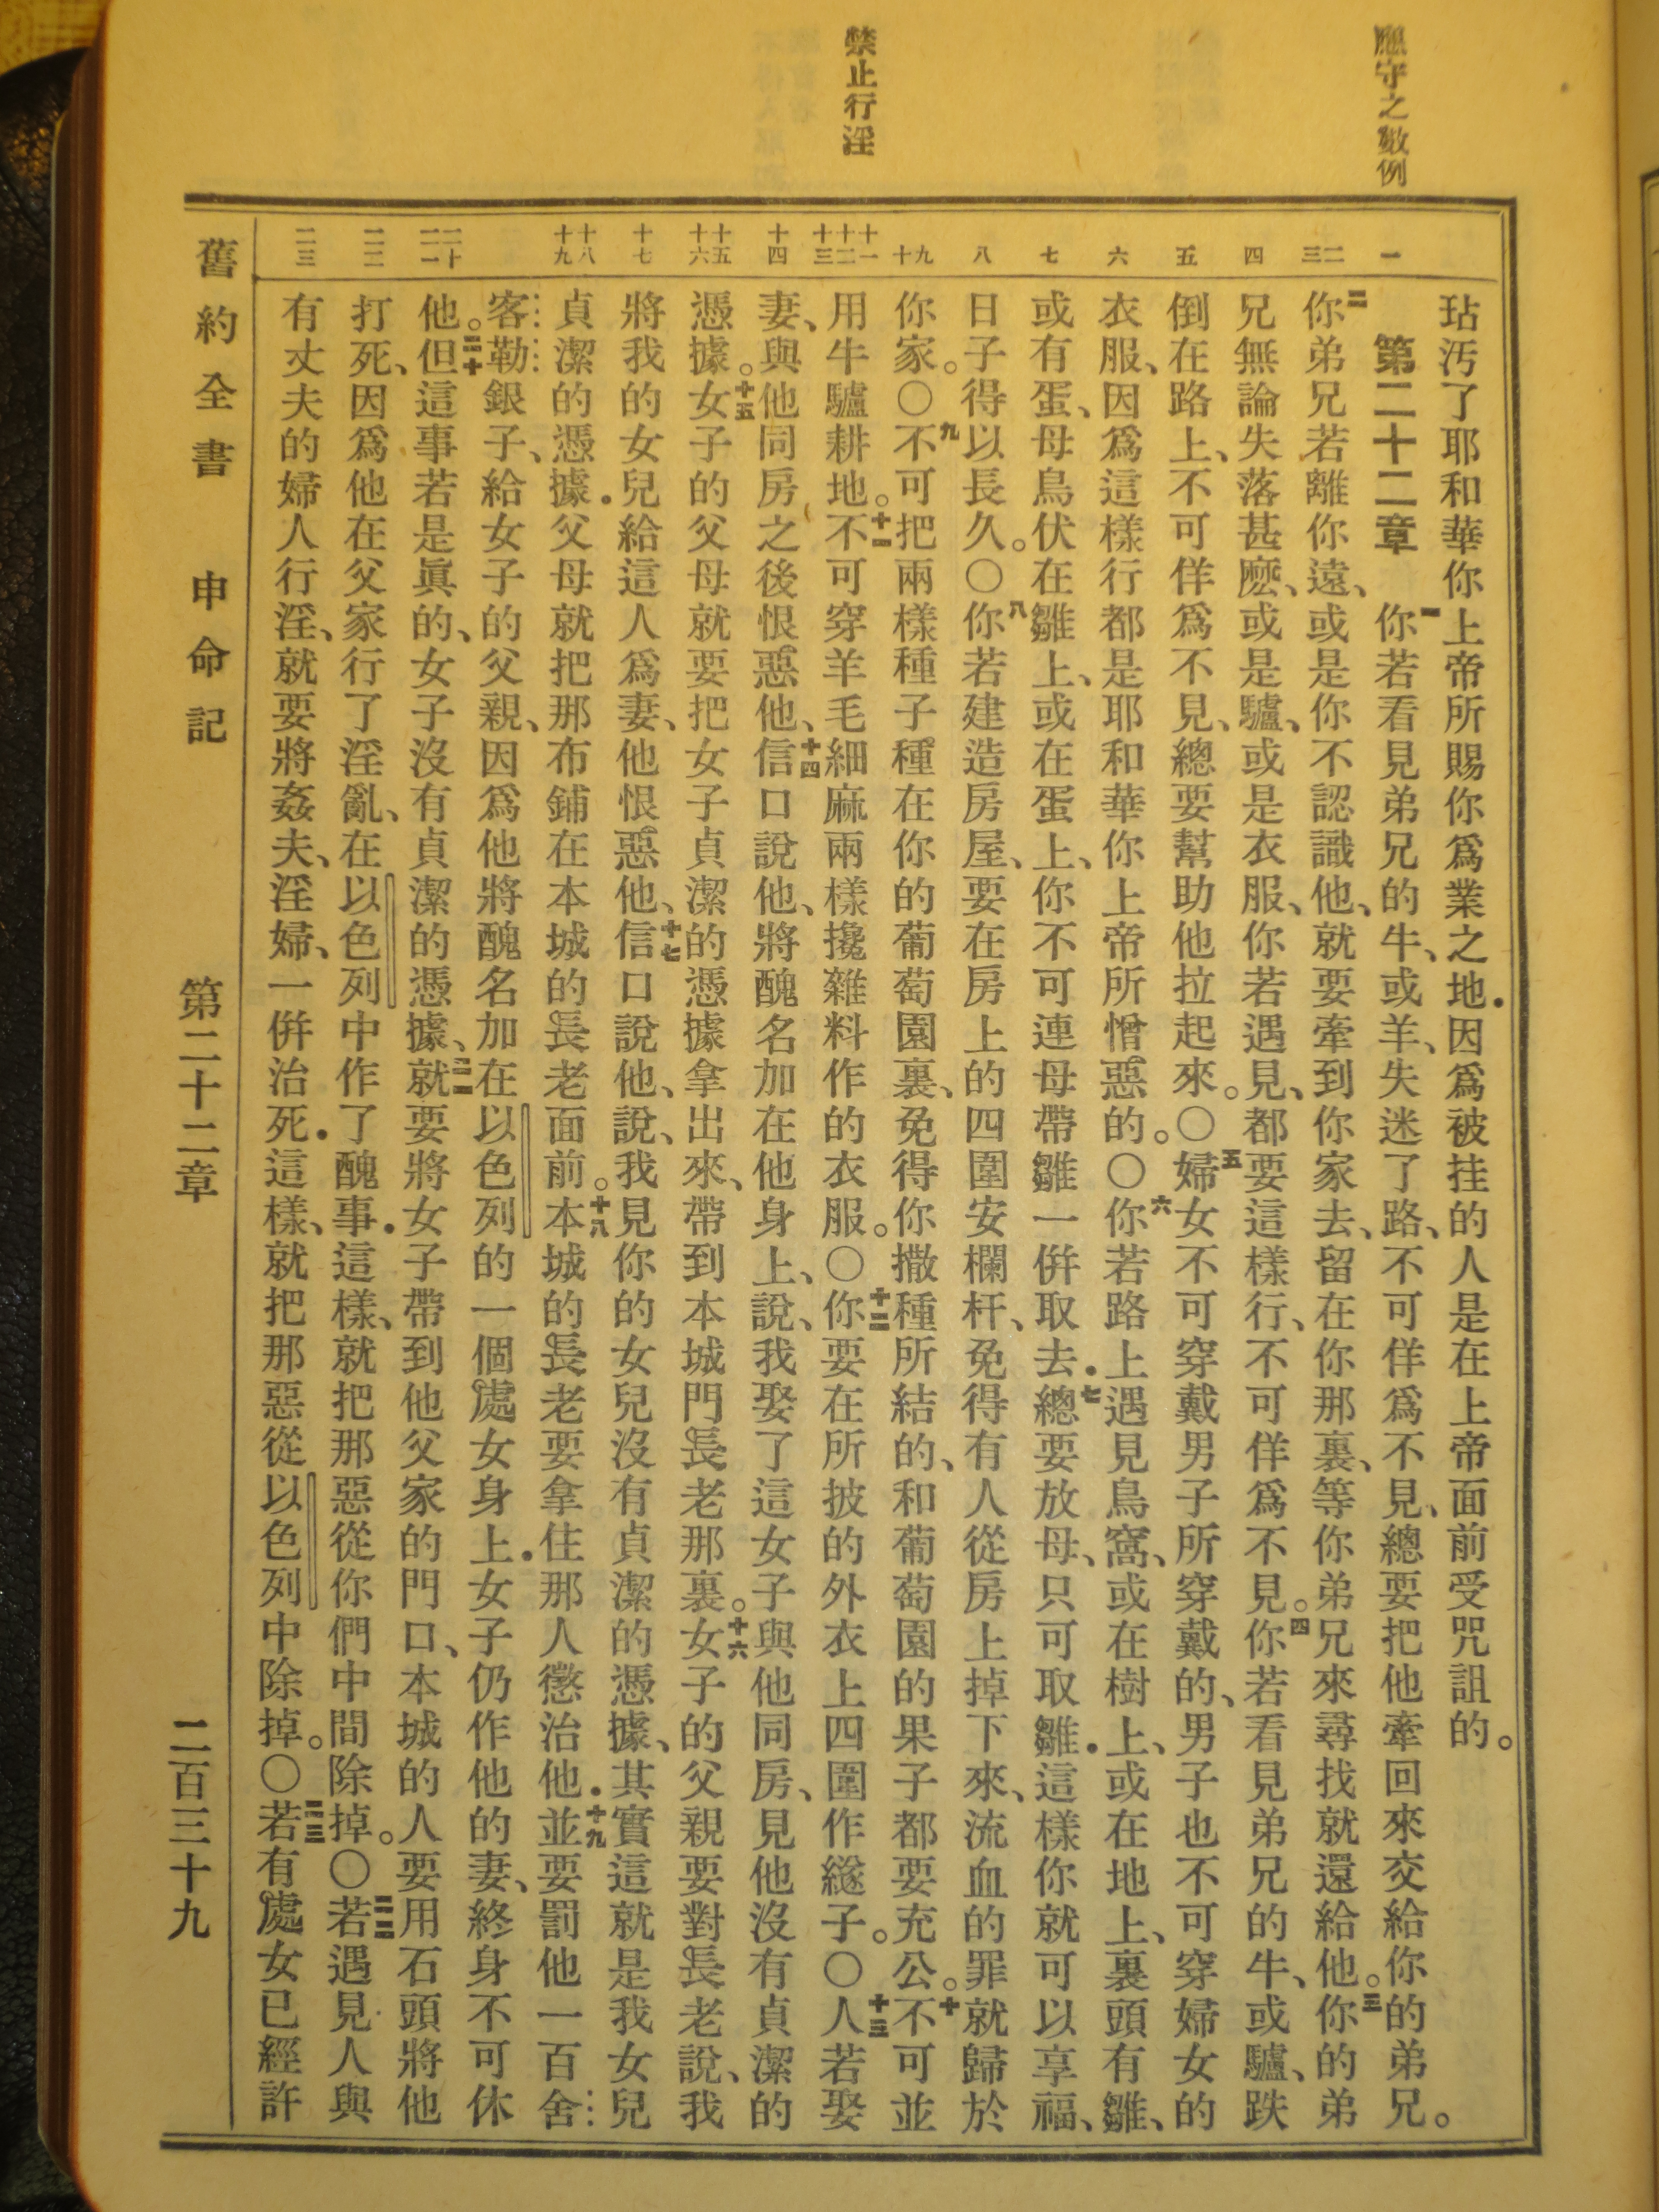 應守之數例
禁止行淫
一
二三
四
五
六
七
八
九十
十一十二十三
十四
十五十六
十七
十八十九
二十二一
二二
二三
玷污了耶和華你上帝所賜你爲業之地．因爲被挂的人是在上帝面前受咒詛的。
第二十二章　一你若看見弟兄的牛、或羊、失迷了路、不可佯爲不見、總要把他牽回來交給你的弟兄。
二你弟兄若離你遠、或是你不認識他、就要牽到你家去、留在你那裏、等你弟兄來尋找就還給他。三你的弟
兄無論失落甚麽、或是驢、或是衣服、你若遇見、都要這樣行、不可佯爲不見。四你若看見弟兄的牛、或驢、跌
倒在路上、不可佯爲不見、總要幫助他拉起來。〇五婦女不可穿戴男子所穿戴的、男子也不可穿婦女的
衣服、因爲這樣行都是耶和華你上帝所憎惡的。〇六你若路上遇見鳥窩、或在樹上、或在地上、裏頭有雛、
或有蛋、母鳥伏在雛上、或在蛋上、你不可連母帶雛一倂取去．七總要放母、只可取雛．這樣你就可以享福、
日子得以長久。〇八你若建造房屋、要在房上的四圍安欄杆、免得有人從房上掉下來、流血的罪就歸於
你家。〇九不可把兩樣種子種在你的葡萄園裏、免得你撒種所結的、和葡萄園的果子都要充公。十不可並
用牛驢耕地。十一不可穿羊毛細麻兩樣攙雜料作的衣服。〇十二你要在所披的外衣上四圍作繸子。〇十三人若娶
妻、與他同房之後恨惡他、十四信口說他、將醜名加在他身上、說、我娶了這女子與他同房、見他沒有貞潔的
憑據。十五女子的父母就要把女子貞潔的憑據拿出來、帶到本城門長老那裏。十六女子的父親要對長老說、我
將我的女兒給這人爲妻、他恨惡他、十七信口說他、說、我見你的女兒沒有貞潔的憑據、其實這就是我女兒
貞潔的憑據．父母就把那布鋪在本城的長老面前。十八本城的長老要拿住那人懲治他．十九並要罰他一百舍
客勒銀子、給女子的父親、因爲他將醜名加在以色列的一個處女身上．女子仍作他的妻、終身不可休
他。二十但這事若是眞的、女子沒有貞潔的憑據、二一就要將女子帶到他父家的門口、本城的人要用石頭將他
打死、因爲他在父家行了淫亂、在以色列中作了醜事．這樣、就把那惡從你們中間除掉。〇二二若遇見人與
有丈夫的婦人行淫、就要將姦夫、淫婦、一倂治死．這樣、就把那惡從以色列中除掉。〇二三若有處女已經許
舊約全書　申命記　第二十二章　二百三十九